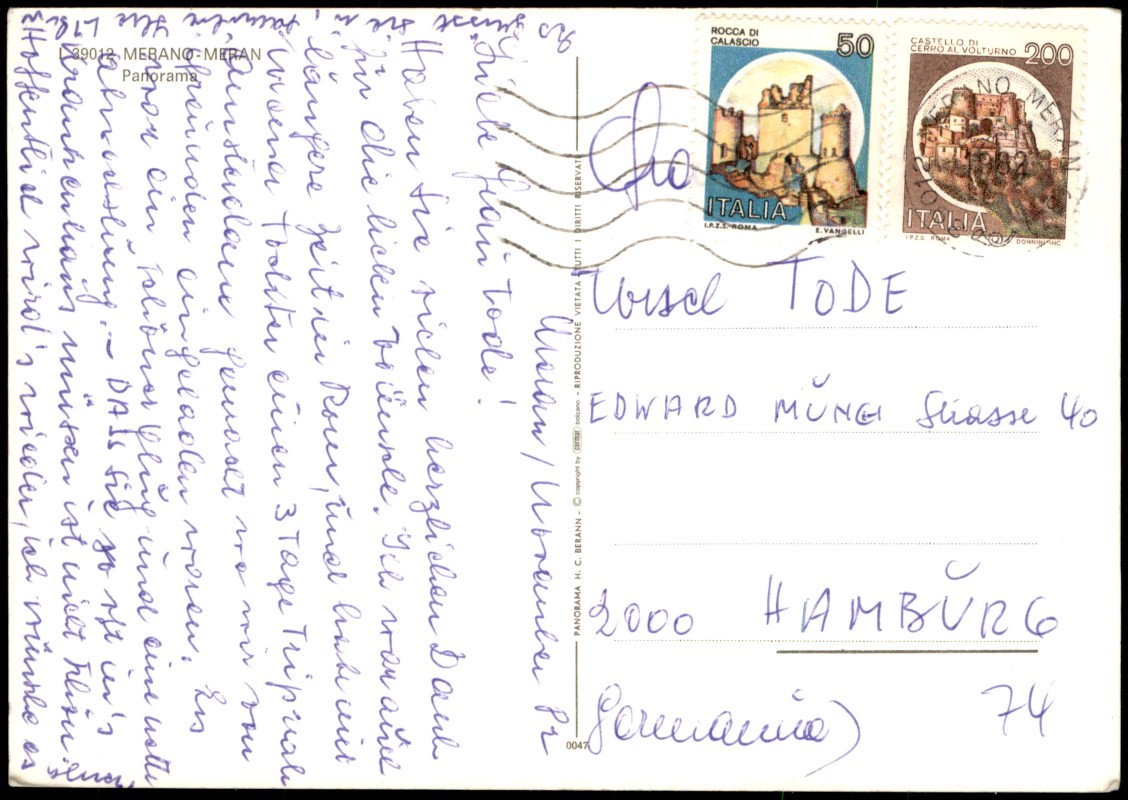 I-39012 MERANO-MERAN
Panorama
Meran, November 82
Liebe Frau Tode!
Haben Sie vielen herzlichen Dank
für die lieben Wünsche. Ich war eine
längere Zeit in Rom, und habe mit
meiner Tochter einen 3 Tage Trip nach
Amsterdam gemacht wo wir von
Freunden eingeladen waren. Es
war ein schöner Flug und eine nette
Abwechslung. - DAß Sie so oft in's
Krankenhaus müssen ist nicht schön
Hoffentlich wird's wieder, ich wünsche es
PANORAMA H. C. BERANN - © copyright by bolzano - RIPRODUZIONE VIETATA - TUTTI I DIRITTI RISERVATI
0047
ROCCA DI
CALASCIO
50
ITALIA
I.P.Z.S. ROMA
E. VANGELLI
CASTELLO DI
CERRO AL VOLTURNO
200
ITALIA
I.P.Z.S. ROMA
MERANO MERAN
Ursel TODE
EDWARD MÜNCH Strasse 40
2000 HAMBURG
74
Germania)